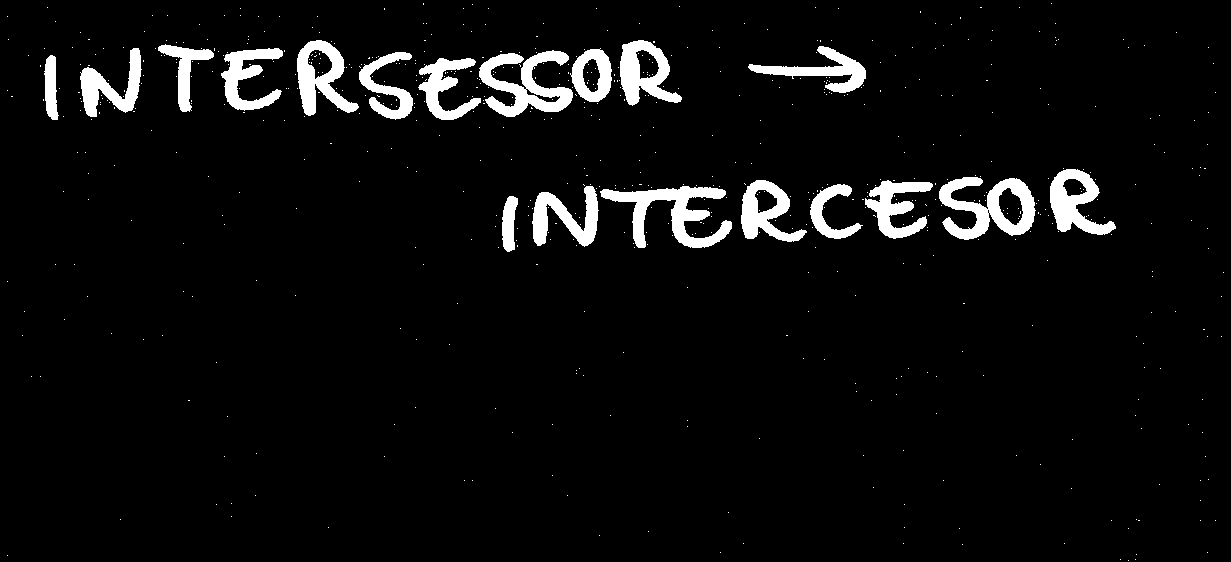 INTERSESSOR →
INTERCESOR